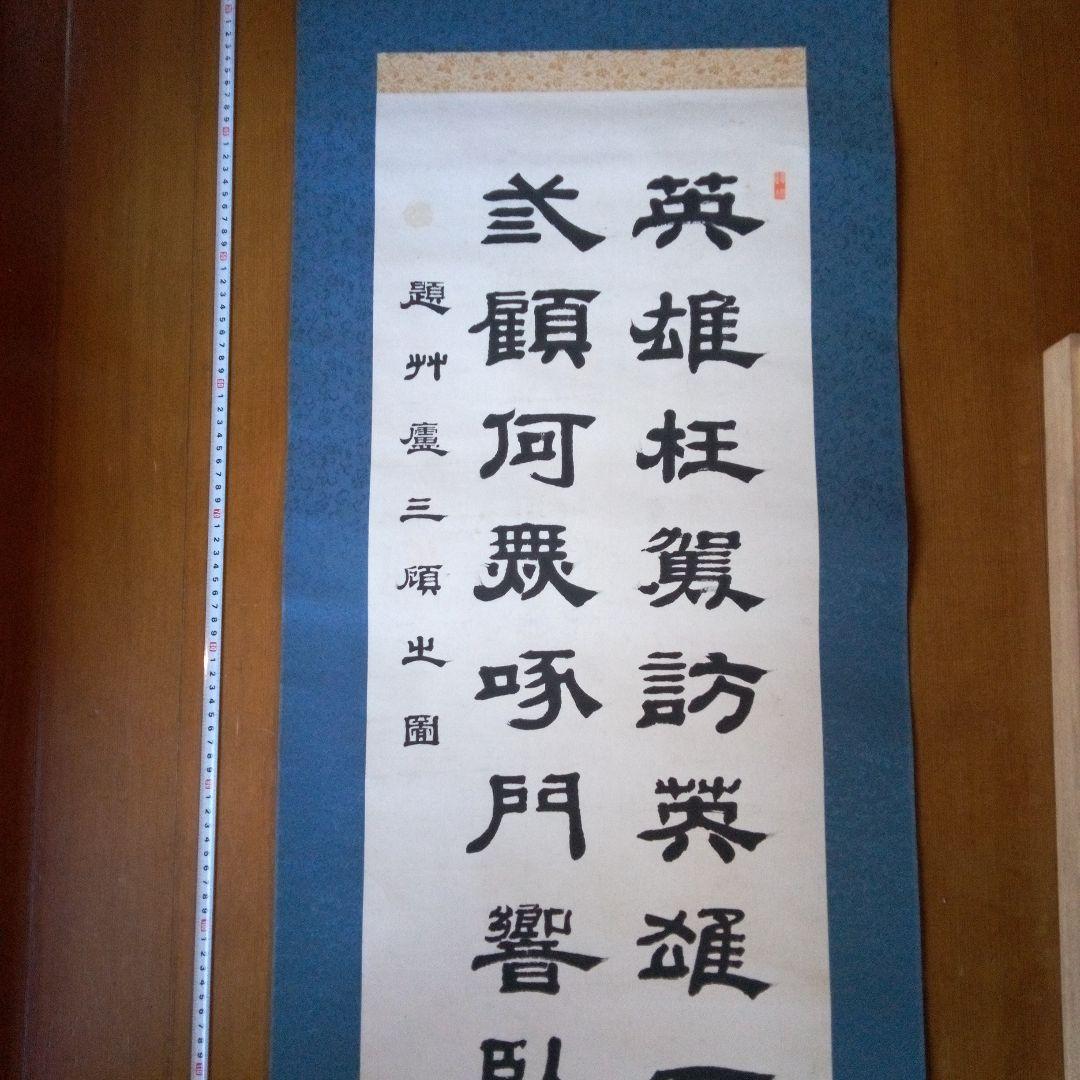 英雄枉駕訪英雄一
弎顧何無啄門響臥
題艸廬三顧之圖